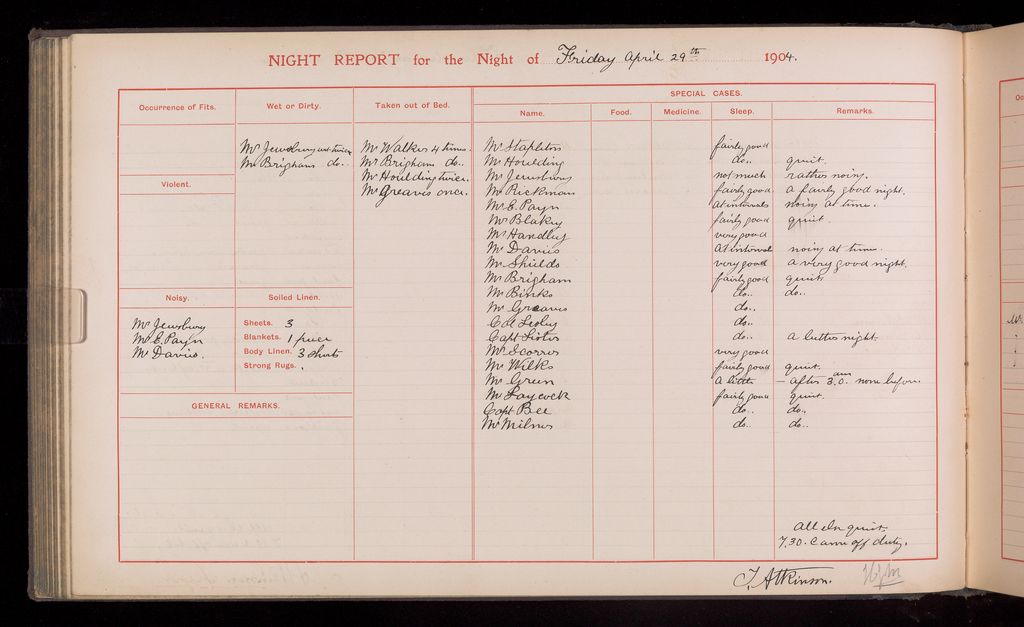 NIGHT REPORT for the Night of Friday April 29th 1904.
Occurrence of Fits.
Wet or Dirty.
Taken out of Bed.
SPECIAL CASES.
Name.
Food.
Medicine.
Sleep.
Remarks.
Mr Jewsbury wet twice
Mr Brigham do..
Mr Walker 4 times.
Mr Brigham do..
Mr Houlding twice.
Mr Greaves once.
Violent.
Noisy.
Mr Jewsbury
Mr E. Payn
Mr Davies.
Soiled Linen.
Sheets. 3
Blankets. 1 piece
Body Linen. 3 shirts
Strong Rugs. .
GENERAL REMARKS.
Mr Stapleton fairly good
Mr Houlding do.. quiet.
Mr Jewsbury not much rather noisy.
Mr Rickman fairly good a fairly good night.
Mr E. Payn at intervals noisy at time.
Mr Blakey fairly good quiet.
Mr Handley very good
Mr Davies at interval noisy at time.
Mr Shields very good a very good night.
Mr Brigham fairly good quiet.
Mr Binks do.. do..
Mr Greaves do..
Col Lesley do..
Capt Lister do.. a better night.
Mr Scorrer very good
Mr Wilks fairly good quiet.
Mr Green a little – after 3.0. am none before.
Mr Laycock fairly good quiet.
Capt Bee do.. do..
Mr Milner do.. do..
All In quiet.
7.30. Came off duty.
T. Atkinson.